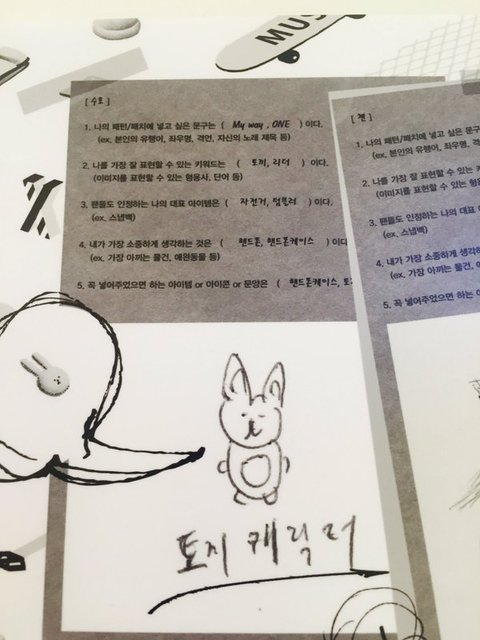 MUS
[ 수호 ]
1. 나의 패턴/패치에 넣고 싶은 문구는 ( My way, ONE ) 이다.
(ex. 본인의 유행어, 좌우명, 격언, 자신의 노래 제목 등)
2. 나를 가장 잘 표현할 수 있는 키워드는 ( 토끼, 리더 ) 이다.
(이미지를 표현할 수 있는 형용사, 단어 등)
3. 팬들도 인정하는 나의 대표 아이템은 ( 자전거, 텀블러 ) 이다.
(ex. 스냅백)
4. 내가 가장 소중하게 생각하는 것은 ( 핸드폰, 핸드폰케이스 ) 이다
(ex. 가장 아끼는 물건, 애완동물 등)
5. 꼭 넣어주었으면 하는 아이템 or 아이콘 or 문양은 ( 핸드폰케이스, 토
토끼 캐릭터
[ 첸 ]
1. 나의 패턴/패치에 넣고 싶은 문구
(ex. 본인의 유행어, 좌우명, 격
2. 나를 가장 잘 표현할 수 있는 키
(이미지를 표현할 수 있는 형용사
3. 팬들도 인정하는 나의 대표 아이
(ex. 스냅백)
4. 내가 가장 소중하게 생각하
(ex. 가장 아끼는 물건, 애
5. 꼭 넣어주었으면 하는 아이